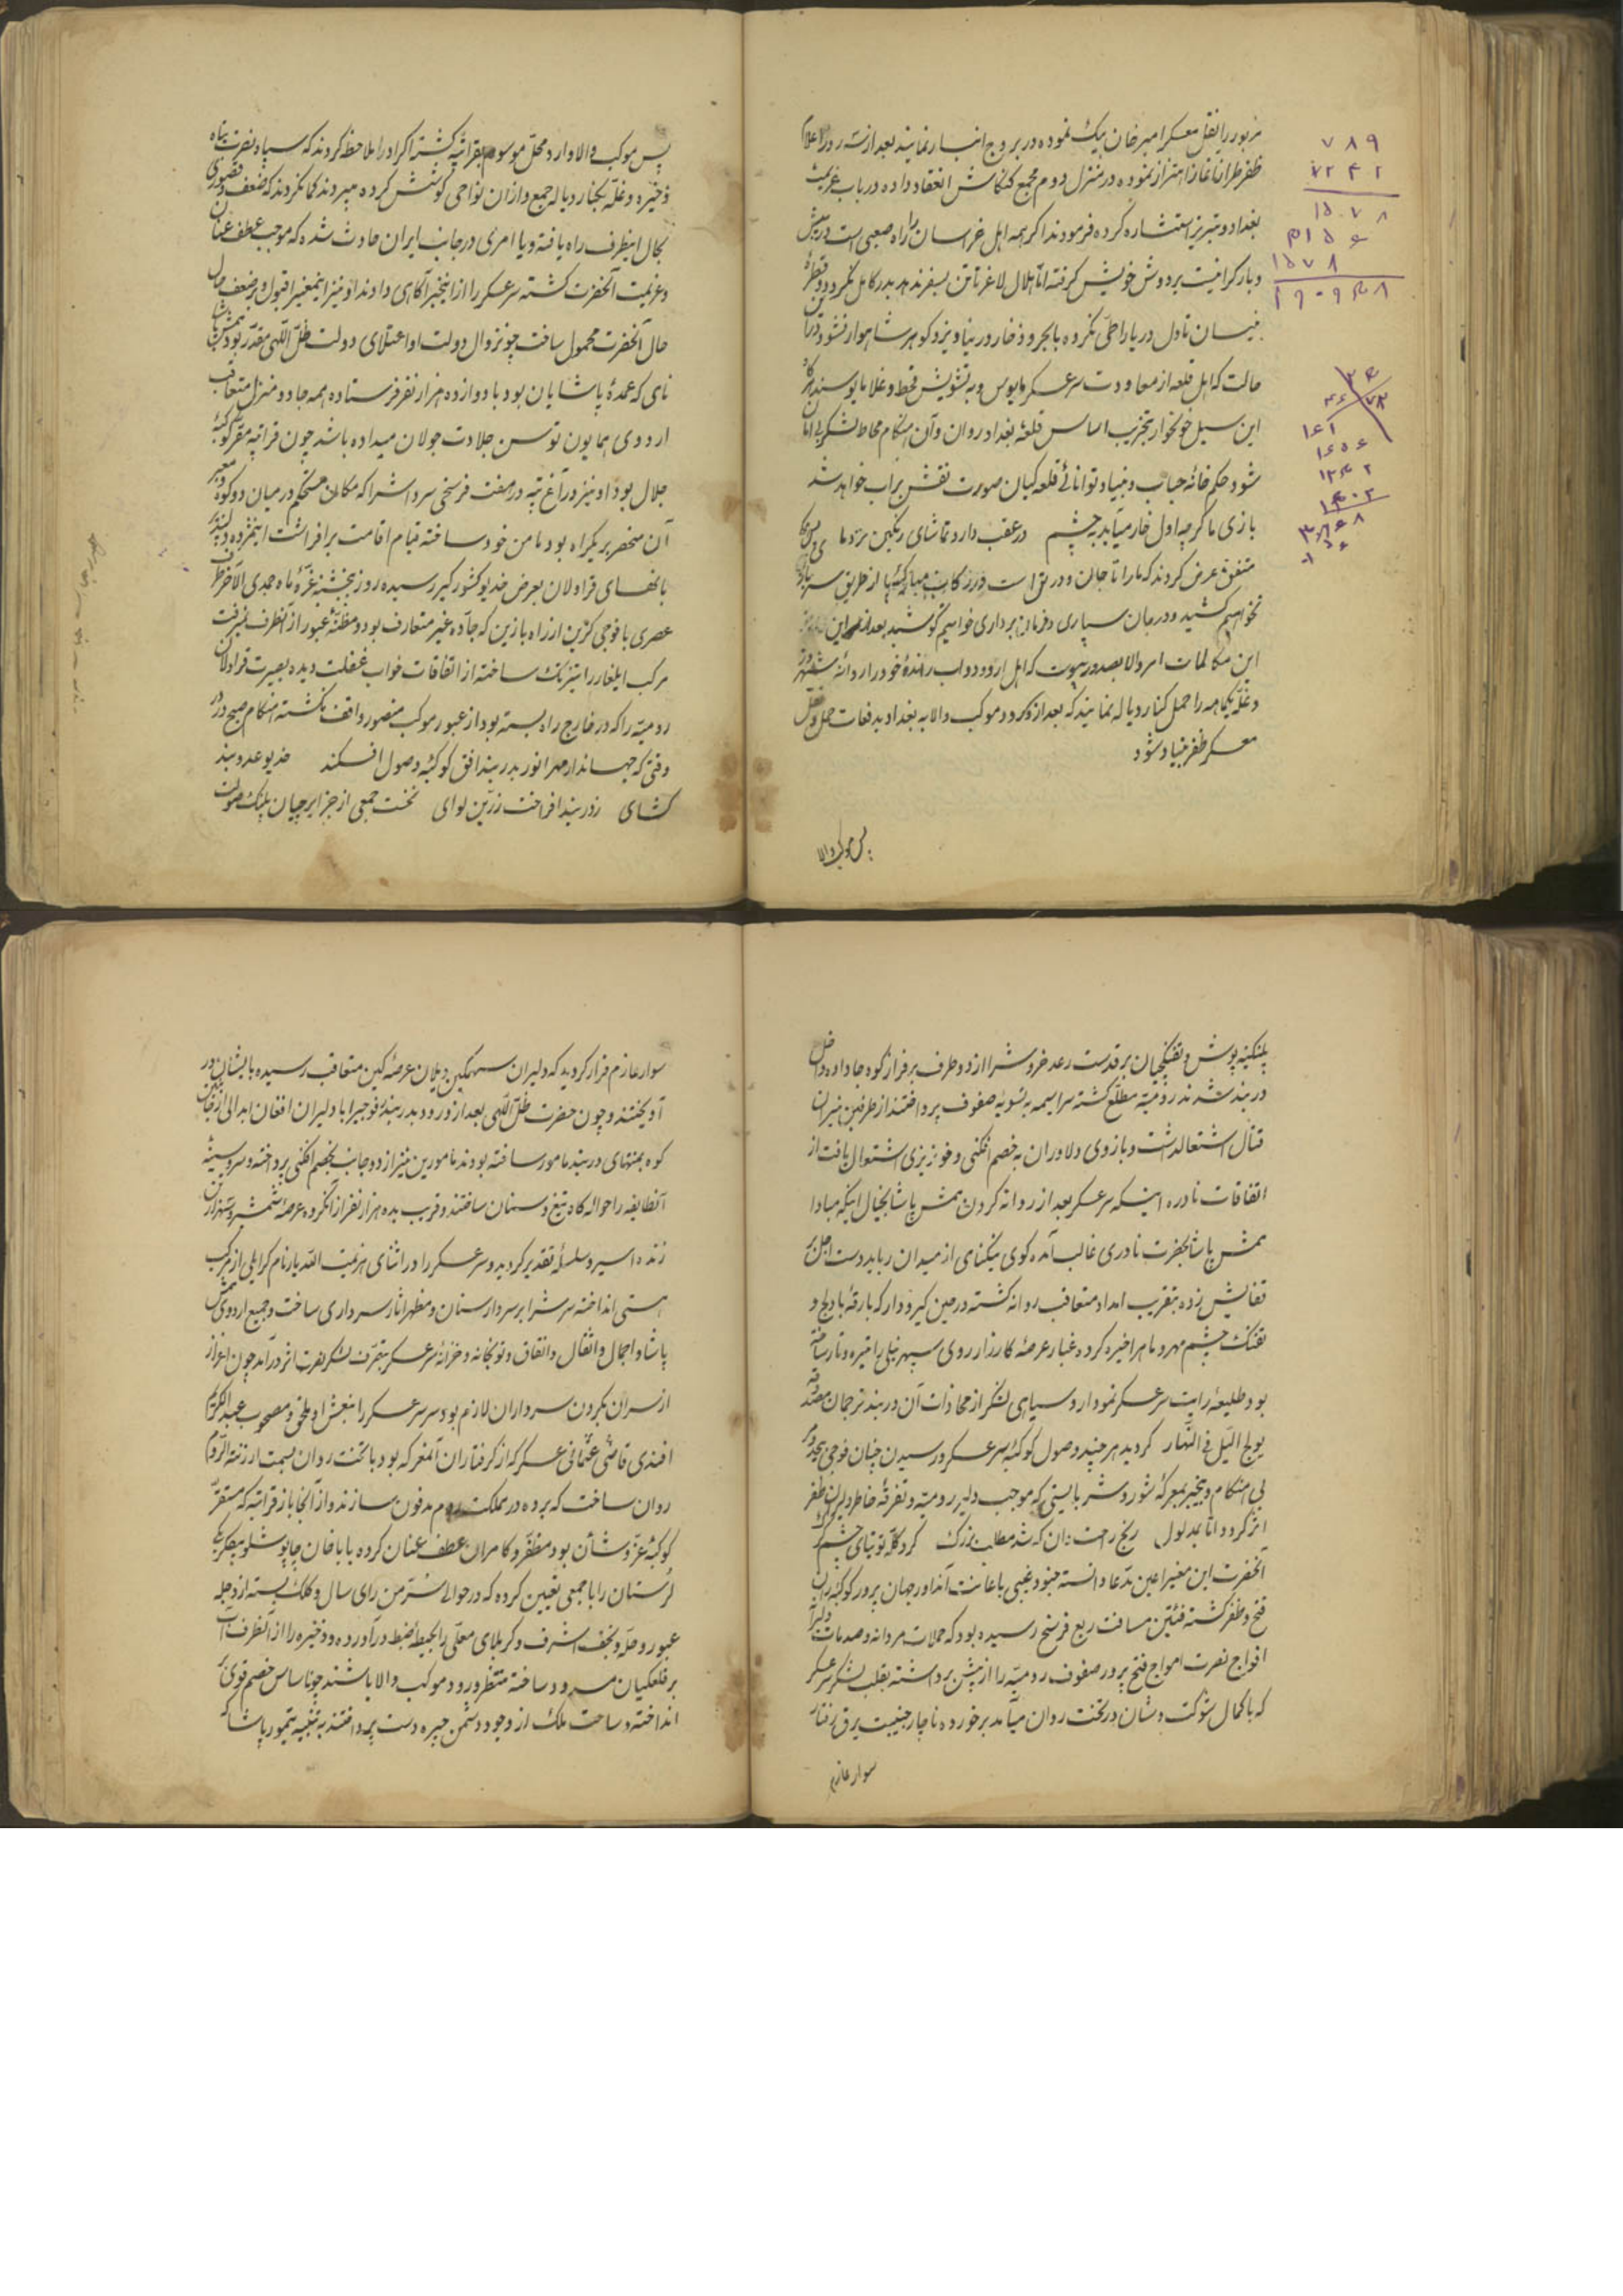 مزبور را بقل معسکر امیرخان بیک نموده در بروج انبار نمایند بعد از سه روز اعلام
ظفر طراز آغاز اهتزاز نموده در منزل دوم مجمع کنکاش انعقاد داده در باب عزیمت
بغداد و تبریز استشاره کرده فرمودند اگر همه اهل خراسان را راه صعبی است در پیش
و بار گرانیست بر دوش خویش گرفته اما هلال لاغر تا تن بسفر ندهد بدر کامل نگردد و قطره
نیسان تا دل دریا را طی نکرده با بحر ذخار در نیاویزد گوهر شاهوار نشود در این
حالت که اهل قلعه از معاودت سرعسکر مایوس و به تشویش قحط و غلا مایوسند هرگاه
این سیل خونخوار بتخریب اساس قلعه بغداد روان و آن هنگام محاط لشکر بی امان
شود حکم خانه حباب و بنیاد توانائی قلعه کیان صورت نقش بر آب خواهد شد
بازی ما گرچه اول خار میآید بچشم در عقب دارد تماشای رنگین نزد ما
متفق عرض کردند که ما را تا جان در بدن است در رکاب مبارک پا از طریق سربازی
نخواهیم کشید و در جان سپاری و فرمان برداری خواهیم کوشید بعد از این
این مکالمات امر والا بصدور پیوست که اهل اردو دواب رانده خود را روانه
و غله یکماهه را حمل کنار دیاله نمایند که بعد از ورود موکب والا به بغداد بدفعات حمل و نقل
معسکر ظفر بنیاد شود
پس موکب والا
۷۸۹
پس موکب والا وارد محل موسوم بقراتپه گشته اکراد را ملاحظه کردند که سپاه نصرت پناه
ذخیره و غله بکنار دیاله جمع و از آن نواحی کوشش کرده میبردند گمان کردند که ضعف و قصوری
بحال اینطرف راه یافته و یا امری در جانب ایران حادث شده که موجب عطف عنان
و عزیمت آنحضرت گشته سرعسکر را از اینخبر آگاهی دادند او نیز اینمعنی را قبول و بر ضعف
حال آنحضرت محمول ساخت چون زوال دولت او و اعتلای دولت ظل اللهی مقدر بود ممش پاشا
نامی که عمده پاشایان بود با دوازده هزار نفر فرستاده همه جا دو منزل متعاقب
اردوی همایون توسن جلادت جولان میداده باشد چون قراتپه مقر کوکبه
جلال بود او نیز در آغ تپه در هفت فرسخی سرداشرا که مکان مستحکم در میان دو کوه و معبر
آن منحصر بر یکراه بود مامن خود ساخته خیام اقامت برافراشت اینمژده دلپذیر
بانهای قراولان بعرض خدیو کشورگیر رسیده روز پنجشنبه غره ماه جمدی الآخر
عصری با فوجی گزین از راه بازین که جاده غیر متعارف بود و مظنه عبور از آنطرف نمیرفت
مرکب ایلغار را تیزتک ساخته از اتفاقات خواب غفلت دیده بصیرت قراولان
رومیه را که در خارج راه بسته بود از عبور موکب منصور واقف نگشته هنگام صبح در
وقتی که جهاندار مهر انور بدربند افق کوکبه وصول افکند خدیو عدو بند
کشای زد در بند افراخت زرین لوای نخست جمعی از جزایرچیان پلنک صولت
پلنگینه پوش و تفنگچیان برق دست رعد خروش را از دو طرف بر فراز کوه جا داده داخل
دربند شدند رومیه مطلع گشته سراسیمه به تسویه صفوف پرداختند از طرفین نیران
قتال اشتعال داشت و بازوی دلاوران به خصم افکنی و خونریزی اشتغال یافت از
اتفاقات نادره اینکه سرعسکر بعد از روانه کردن ممش پاشا بخیال اینکه مبادا
ممش پاشا بحضرت نادری غالب آمده گوی نیکنامی از میدان رباید دست اجل بر
قفایش زده بتقریب امداد متعاقب روانه گشته در حین گیرودار که بارقه بادلیج و
تفنک چشم مهر و ماه را خیره کرده غبار عرصه کارزار روی سپهر نیلی را تیره و تار ساخته
بود طلیعه رایت سرعسکر نمودار و سیاهی لشکر از محاذات آن دربند ترجمان مصدوقه
یولج اللیل فی النهار گردید هر چند وصول کوکبه سرعسکر و رسیدن چنان فوجی بیحد و مر
بی هنگام و بیخبر بمعرکه شور و شر بایستی که موجب دلیری رومیه و تفرقه خاطر دلیران ظفر
اثر گردد اما بمدلول رنج راحت دان که شد مطلب بزرک گرد گله توتیای چشم گرک
آنحضرت این معنی را عین مدعا دانسته جنود غیبی باعانت آنداور جهان پرور کوکبه ران
فتح و ظفر گشته فئتین مسافت ربع فرسخ رسیده بود که حملات مردانه و صدمات دلیرانه
افواج نصرت امواج فتح پرور صفوف رومیه را از پیش برداشته بقلب لشکر سرعسکر
که با کمال شوکت و شان در تخت روان میآمد برخورده ناچار جنیبت برق رفتار
سوار عازم
سوار عازم فرار گردید که دلیران سهمگین و یلان عرصه کین متعاقب رسیده بایشان در
آویختند و چون حضرت ظل اللهی بعد از ورود بدربند فوجی را با دلیران افغان ابدالی از جناب
کوه بمنتهای دربند مامور ساخته بودند مامورین نیز از دو جانب بخصم افکنی پرداخته و سر و سینه
آنطایفه را حواله گاه تیغ و سنان ساختند و قریب بده هزار نفر از آنگروه عرصه شمشیر و سه هزار تن
زنده اسیر سلسله تقدیر گردید و سرعسکر را در اثنای هزیمت الله یار نام گرایلی از مرکب
هستی انداخته سرش را بر سردار سنان و مظهر آثار سرداری ساخت و جمیع اردوی ممش
پاشا و احمال و اثقال و اتفاق و توپخانه و خزانه سرعسکر بتصرف لشکر نصرت اثر درآمد چون اعزاز
از سران بگردن سرداران لازم بود سر سرعسکر را بنعش او ملحق و مصحوب عبدالکریم
افندی قاضی عثمانی عسکر که از گرفتاران آنمعرکه بود با تخت روان بسمت ارزنة الروم
روان ساخت که برده در مملکت روم مدفون سازند و از آنجا باز قراتپه که مستقر
کوکبه عز و شأن بود مظفر و کامران عطف عنان کرده باباخان چاپوشلو بیگلربیگی
لرستان را با جمعی تعیین کرده که در حوالی سر من رای سال و کلک بسته از دجله
عبور و حله و نجف اشرف و کربلای معلی را بحیطه ضبط درآورده و ذخیره را از آنطرف آب
بر قلعگیان مسدود ساخته منتظر ورود موکب والا باشند چون اساس خصم قوی
انداخته و ساحت ملک از وجود دشمن چیره دست پرداختند به تنبیه تیمور پاشا که